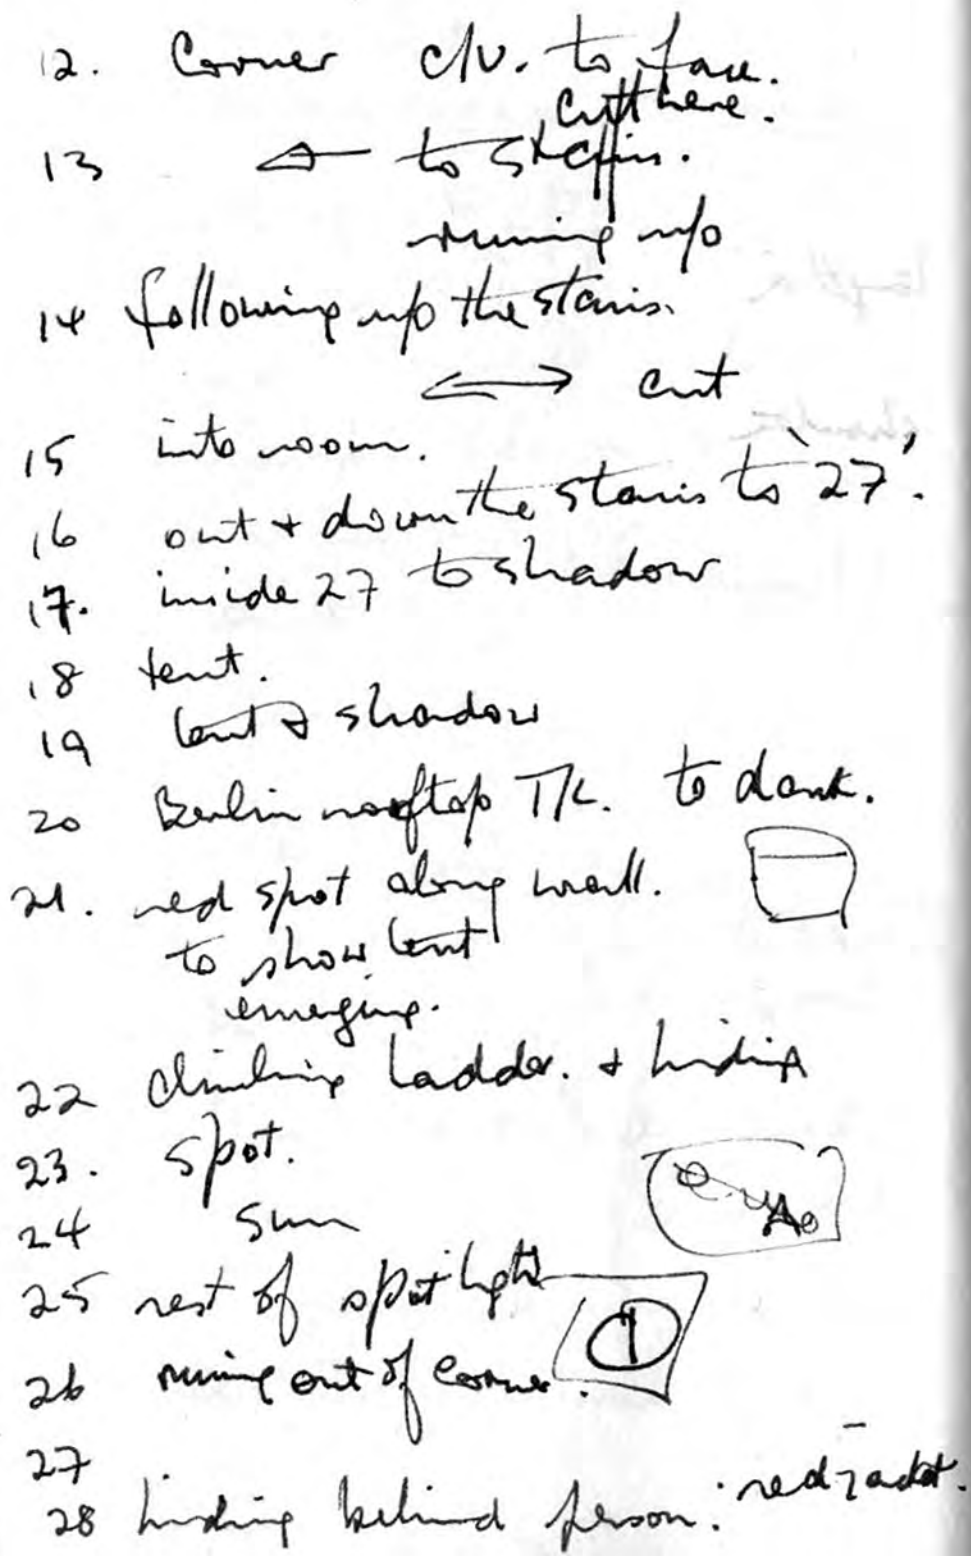 12. Corner c/u. to face.
cut here.
13 ← to stairs.
running up
14 following up the stairs.
←→ cut
15 into room.
16 out + down the stairs to '27'.
17. inside 27 to shadow
18 tent.
19 tent + shadow
20 Berlin rooftop T/L. to dark.
21. red spot along wall.
to show tent
emerging.
22 climbing ladder. + hiding
23. spot.
24 sun
25 rest of spotlight
26 running out of corner.
27
28 hiding behind person. red jacket.